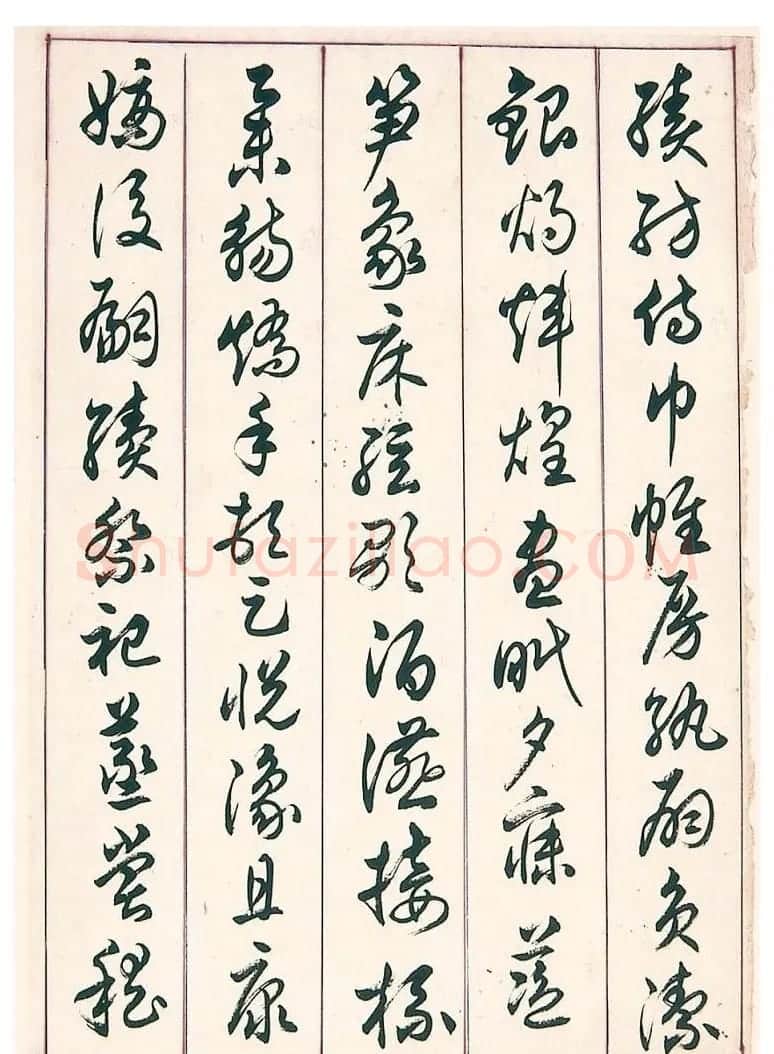 績紡侍巾帷房紈扇員潔
銀燭煒煌晝眠夕寐藍
笋象床絃歌酒讌接杯
舉觴矯手頓足悅豫且康
嫡後嗣續祭祀蒸嘗稽
Shufaziliao.COM